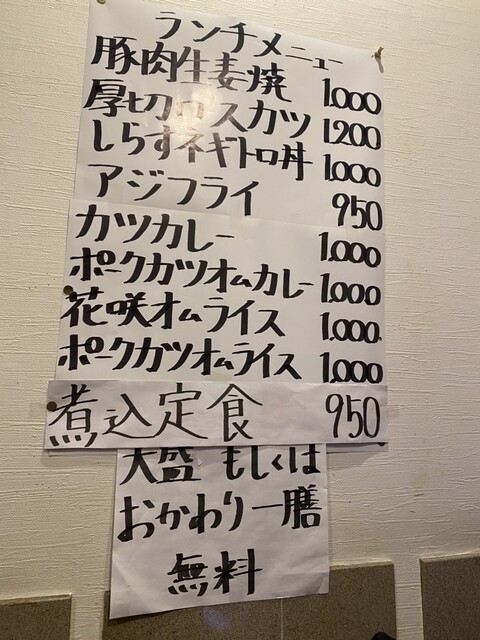 ランチメニュー
豚肉生姜焼 1,000
厚切ロースカツ 1,200
しらすネギトロ丼 1,000
アジフライ 950
カツカレー 1,000
ポークカツオムカレー 1,000
花咲オムライス 1,000
ポークカツオムライス 1,000
煮込定食 950
大盛 もしくは
おかわり一膳
無料